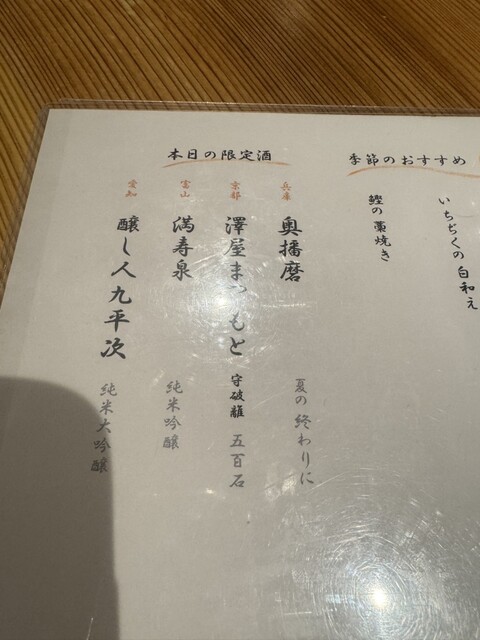 季節のおすすめ
いちぢくの白和え
鰹の藁焼き
本日の限定酒
兵庫
奥播磨
夏の終わりに
京都
澤屋まつもと
守破離 五百石
富山
満寿泉
純米吟醸
愛知
醸し人九平次
純米大吟醸